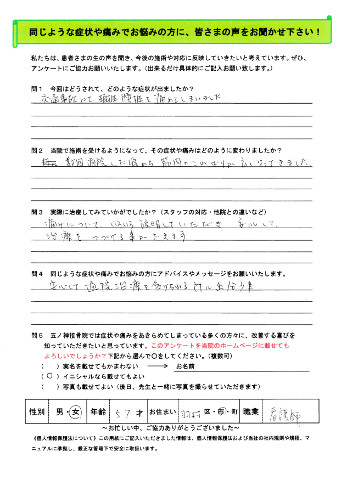 同じような症状や痛みでお悩みの方に、皆さまの声をお聞かせ下さい！
私たちは、患者さまの生の声を聞き、今後の施術や対応に反映していきたいと考えています。ぜひ、
アンケートにご協力お願いいたします。（出来るだけ具体的にご記入お願い致します。）
問１ 今回はどうされて、どのような症状が出ましたか？
交通事故にて 頚椎 腰椎を痛めてしまいました
問２ 当院で施術を受けるようになって、その症状や痛みはどのように変わりましたか？
数回通院した頃から 筋肉のこわばりが なくなってきました
問３ 実際に治療してみていかがでしたか？（スタッフの対応・他院との違いなど）
痛みについて しっかり説明していただき 安心して
治療を つづける事ができます
問４ 同じような症状や痛みでお悩みの方にアドバイスやメッセージをお願いいたします。
安心して 通院 治療を受けられる
問５ 五ノ神接骨院では症状や痛みをあきらめてしまっている多くの方々に、改善する喜びを
知っていただきたいと思っています。このアンケートを当院のホームページに載せても
よろしいでしょうか？下記から選んで〇をしてください。（複数可）
（ ）実名を載せてもかまわない → お名前
（〇）イニシャルなら載せてもよい
（ ）写真も載せてよい（後日、先生と一緒に写真を撮らせていただきます）
性別 男・女 年齢 57才 お住まい 羽村 区・市・町 職業 看護師
～お忙しい中、ご協力ありがとうございました～
《個人情報保護法について》この用紙にご記入をいただきました情報は、個人情報保護法および当社の社内規則や規程、マ
ニュアルに準拠し、厳正な管理下で安全に取扱います。